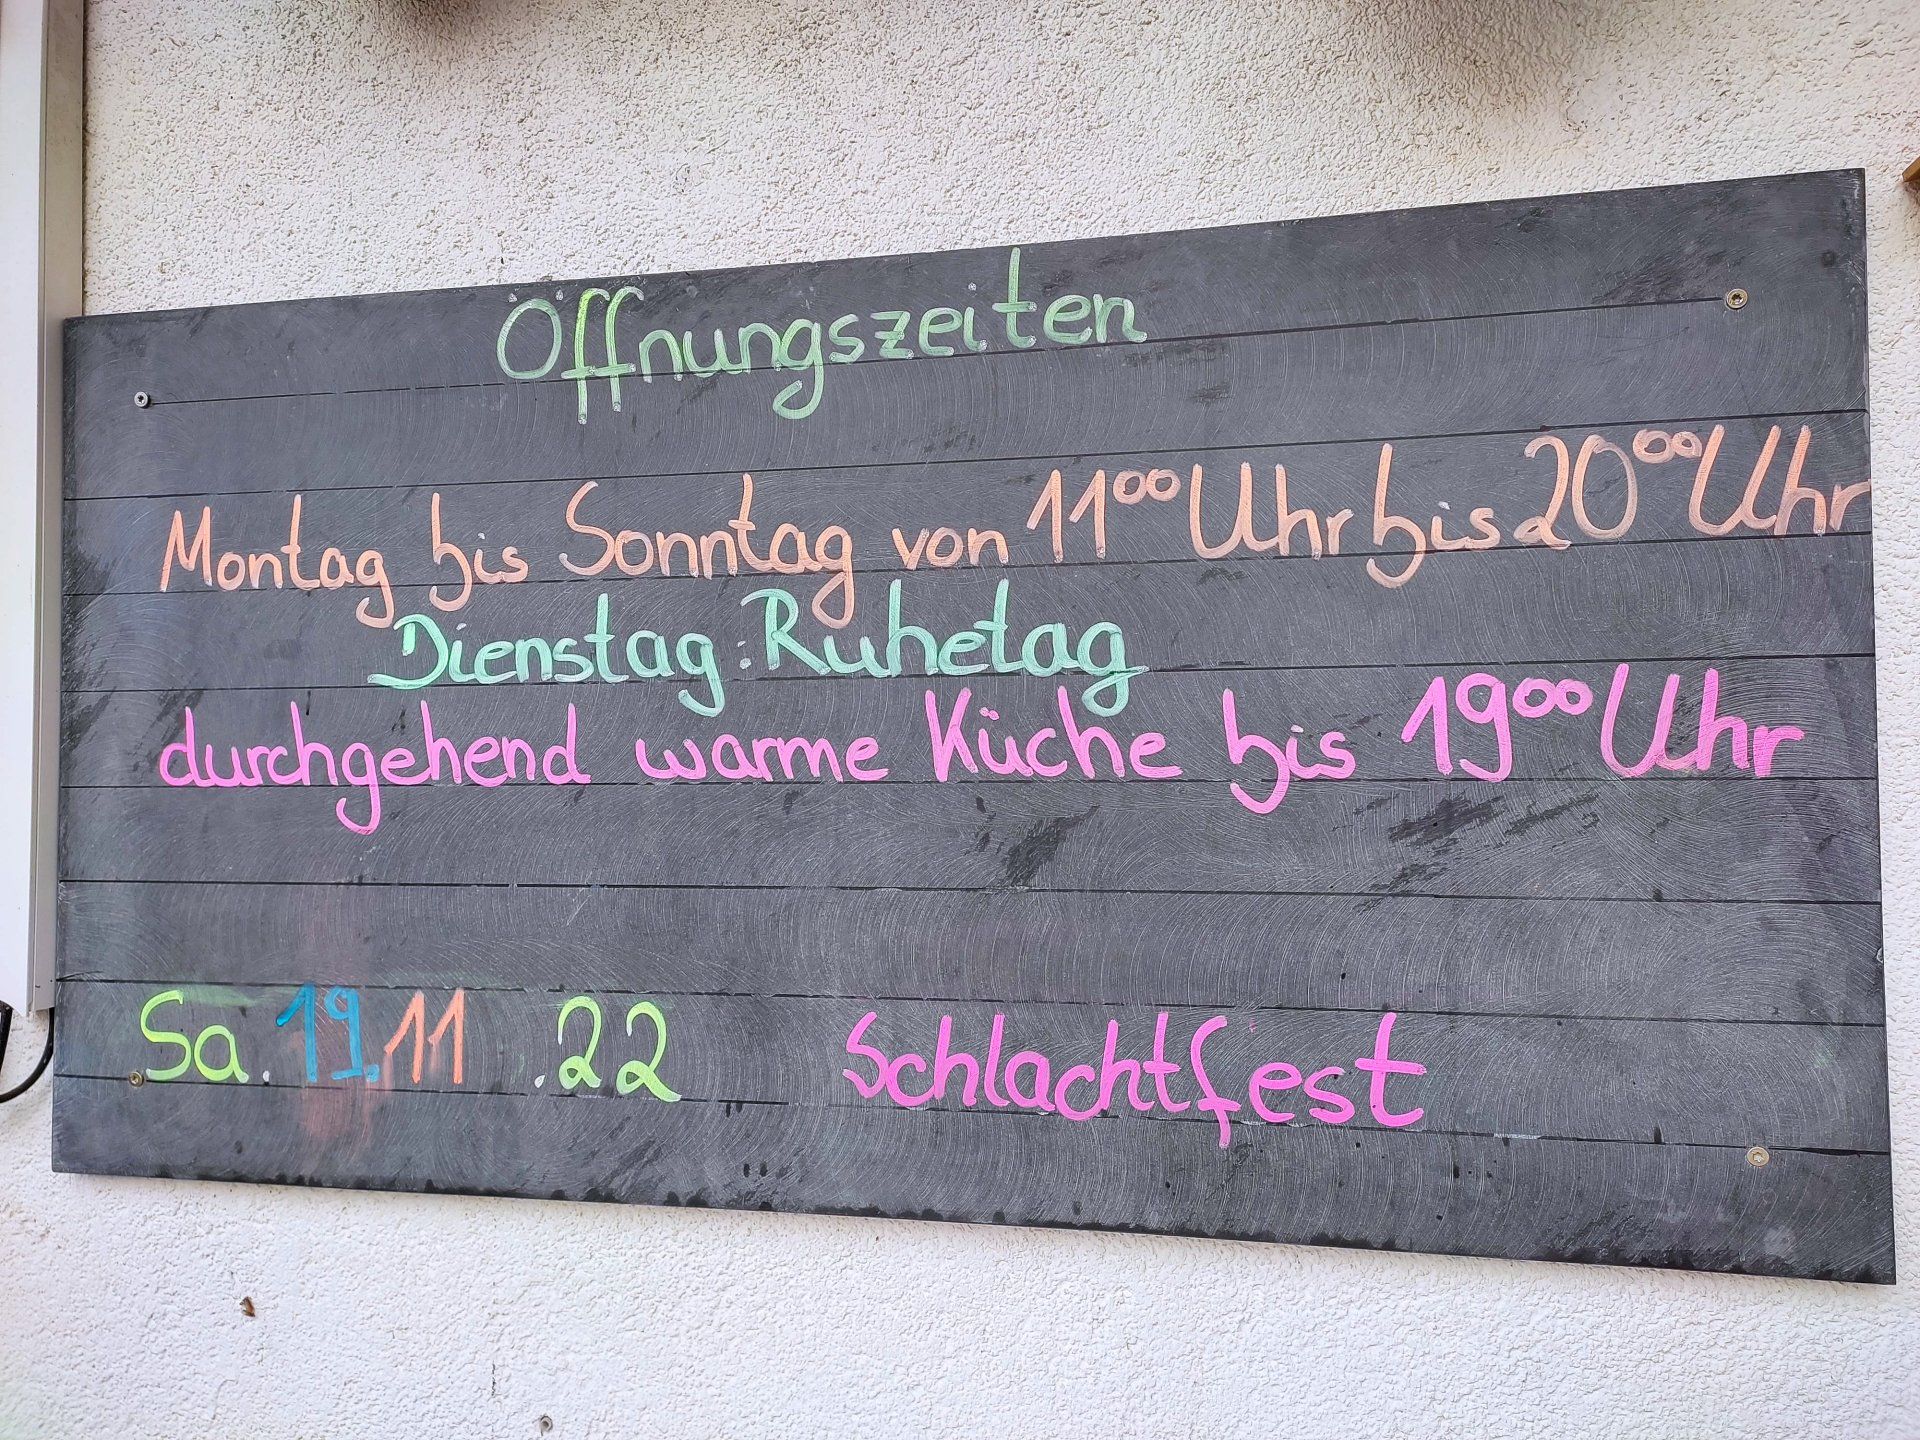 Öffnungszeiten
Montag bis Sonntag von 11⁰⁰ Uhr bis 20⁰⁰ Uhr
Dienstag: Ruhetag
durchgehend warme Küche bis 19⁰⁰ Uhr
Sa. 19.11.22 Schlachtfest